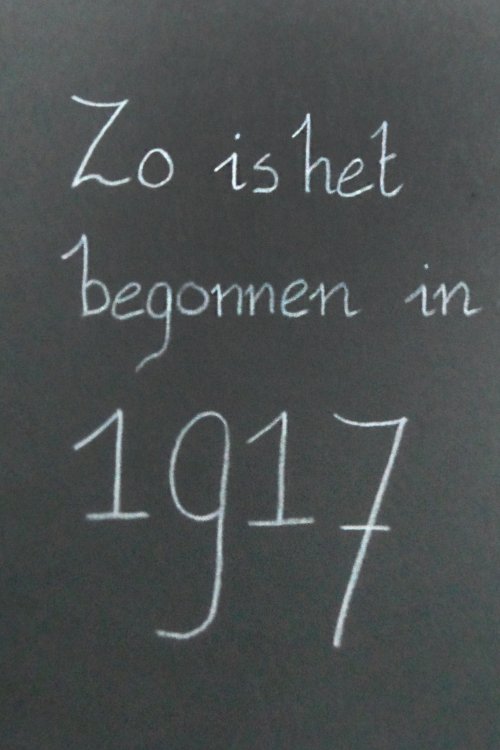 Zo is het
begonnen in
1917